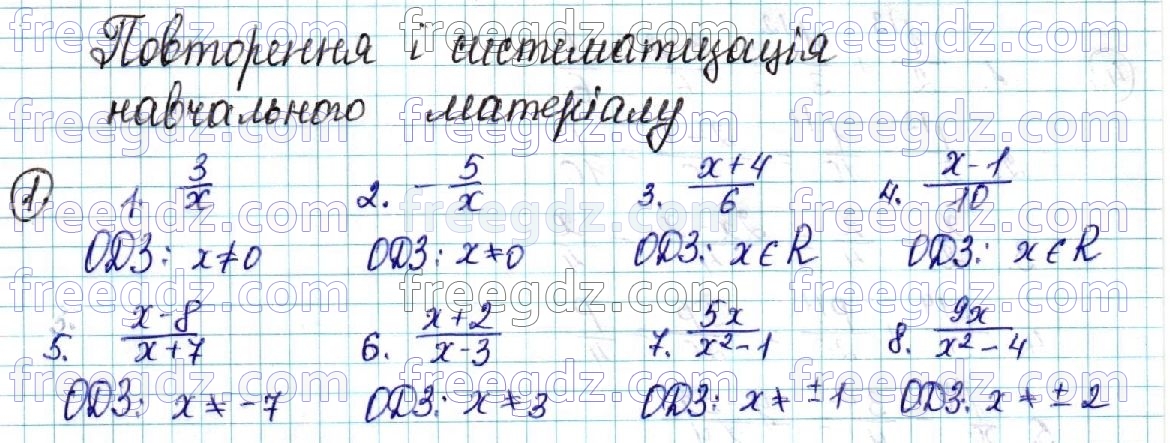 Повторення і систематизація
навчального матеріалу
1 1. 3/x 2. -5/x 3. (x+4)/6 4. (x-1)/10
ОДЗ: x≠0 ОДЗ: x≠0 ОДЗ: x∈R ОДЗ: x∈R
5. (x-8)/(x+7) 6. (x+2)/(x-3) 7. 5x/(x²-1) 8. 9x/(x²-4)
ОДЗ: x≠-7 ОДЗ: x≠3 ОДЗ: x≠±1 ОДЗ: x≠±2
freegdz.com